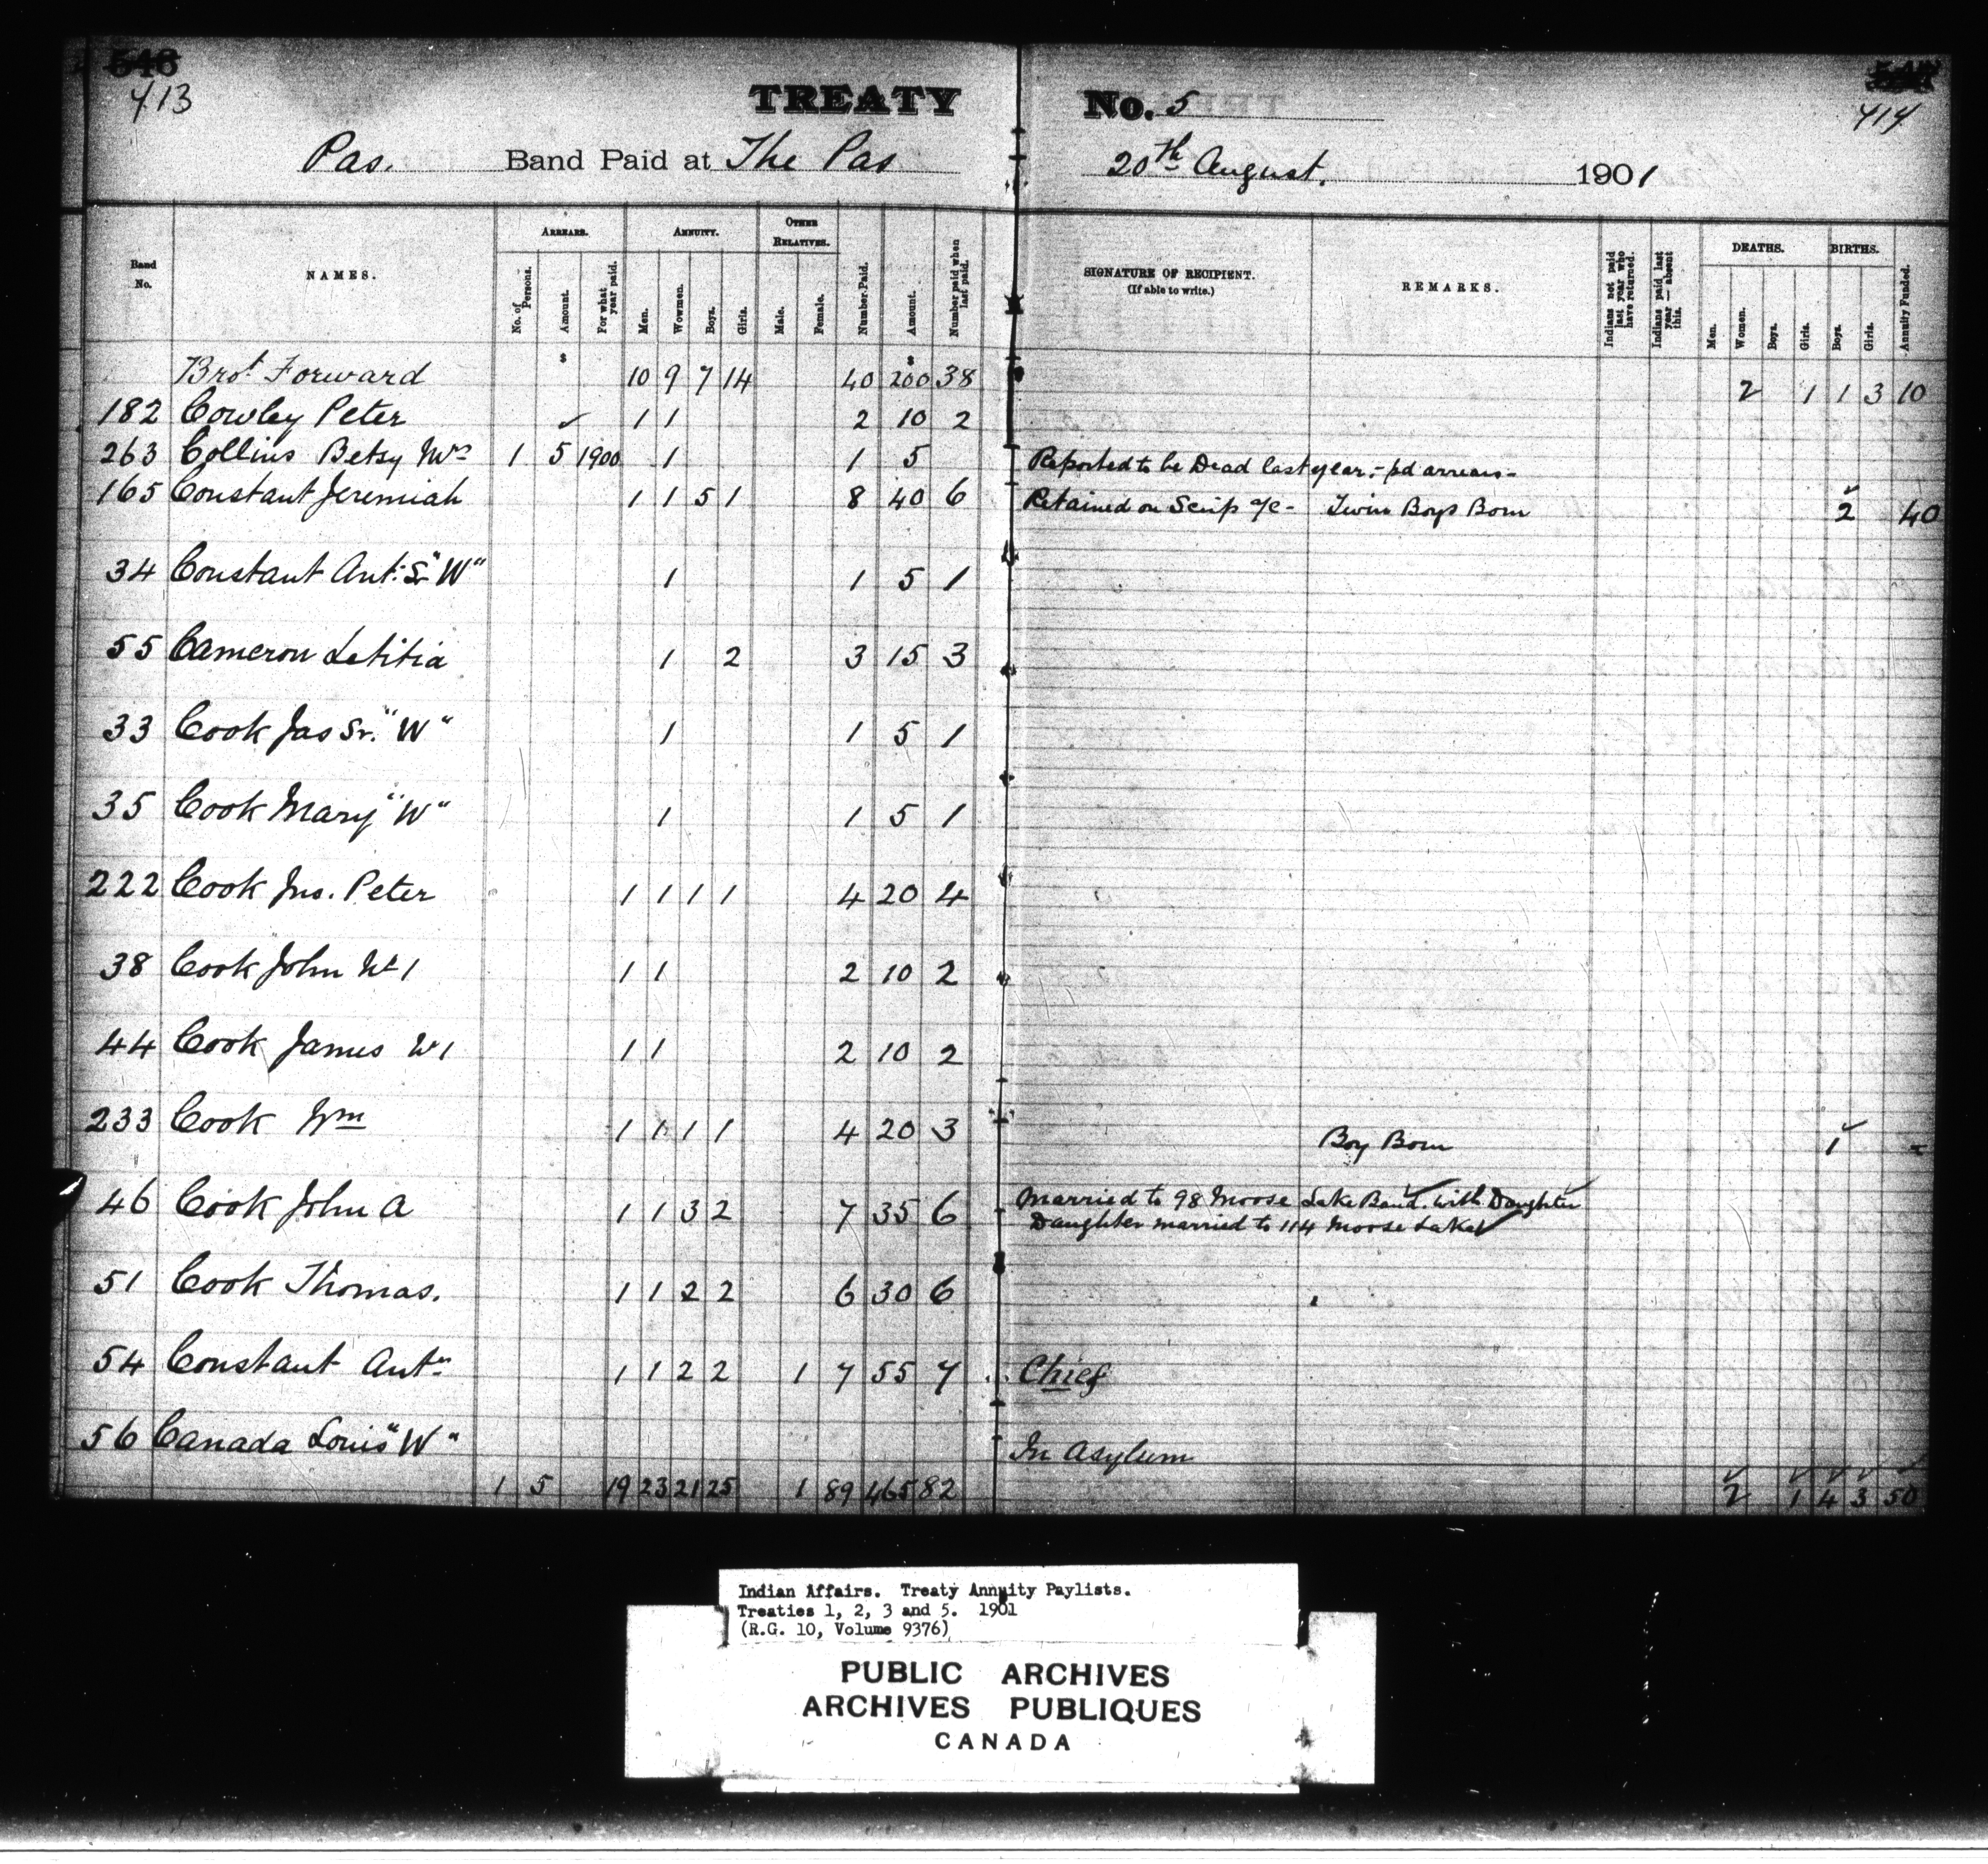 413
TREATY No. 5
414
Pas. Band Paid at The Pas 20th August. 1901
Band No.
NAMES.
ARREARS.
No. of Persons.
Amount.
For what year paid.
ANNUITY.
Men.
Wowmen.
Boys.
Girls.
OTHER RELATIVES.
Male.
Female.
Number Paid.
Amount.
Number paid when last paid.
SIGNATURE OF RECIPIENT.
(If able to write.)
REMARKS.
Indians not paid last year who have returned.
Indians paid last year — absent this.
DEATHS.
Men.
Women.
Boys.
Girls.
BIRTHS.
Boys.
Girls.
Annuity Funded.
$ $
Brot Forward 10 9 7 14 40 200 38 2 1 1 3 10
182 Cowley Peter ✓ 1 1 2 10 2
263 Collins Betsy Mrs 1 5 1900 1 1 5 Reported to be Dead last year. - pd arrears -
165 Constant Jeremiah 1 1 5 1 8 40 6 Retained on Scrip a/c - Twin Boys Born 2 40
34 Constant Ant: Sr "W" 1 1 5 1
55 Cameron Letitia 1 2 3 15 3
33 Cook Jas Sr. "W" 1 1 5 1
35 Cook Mary "W" 1 1 5 1
222 Cook Jno. Peter 1 1 1 1 4 20 4
38 Cook John No 1 1 1 2 10 2
44 Cook James No 1 1 1 2 10 2
233 Cook Wm 1 1 1 1 4 20 3 Boy Born 1
46 Cook John A 1 1 3 2 7 35 6 Married to 98 Moose Lake Band. with Daughter
Daughter married to 114 Moose Lake
51 Cook Thomas. 1 1 2 2 6 30 6
54 Constant Antn 1 1 2 2 1 7 55 7 Chief
56 Canada Louis "W" In Asylum
1 5 19 23 21 25 1 89 465 82 2 1 4 3 50
Indian Affairs. Treaty Annuity Paylists.
Treaties 1, 2, 3 and 5. 1901
(R.G. 10, Volume 9376)
PUBLIC ARCHIVES
ARCHIVES PUBLIQUES
CANADA